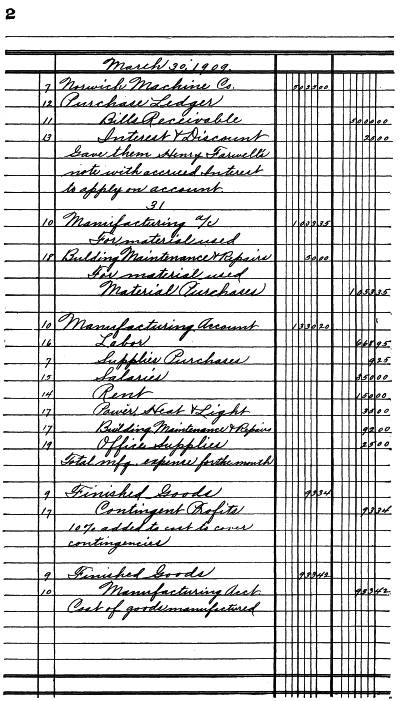 2
March 30, 1909.
7 Norwich Machine Co. 502500
12 Purchase Ledger
11 Bills Receivable 500000
13 Interest & Discount 2500
Gave them Henry Farwell's
note with accrued Interest
to apply on account
31
10 Manufacturing a/c 100335
For material used
18 Building Maintenance & Repairs 5000
For material used
Material Purchases 105335
10 Manufacturing Account 133020
16 Labor 66895
7 Supplies Purchases 925
15 Salaries 35000
14 Rent 15000
17 Power Heat & Light 3500
17 Building Maintenance & Repairs 9200
19 Office Supplies 2500
Total mfg. expense for the month
9 Finished Goods 9334
17 Contingent Profits 9334
10% added to cost to cover
contingencies
9 Finished Goods 93342
10 Manufacturing Acct. 93342
Cost of goods manufactured